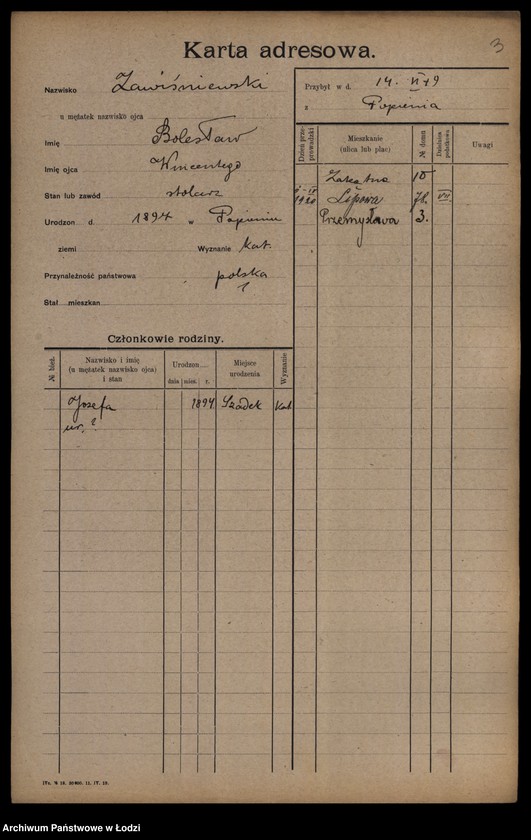 3
Karta adresowa.
Nazwisko Zawiśniewski
u mężatek nazwisko ojca
Imię Bolesław
Imię ojca Wincentego
Stan lub zawód stolarz
Urodzon d. 1894 w Popieniu
ziemi Wyznanie kat.
Przynależność państwowa polska
Stał. mieszkan.
Przybył w d. 14. VI 19
z Popienia
Dzień prze-prowadzki
Mieszkanie (ulica lub plac)
№ domu
Dzielnica podatkowa
Uwagi
Zakątna 10
1920 Lipowa 78. VII
Przemysława 3.
Członkowie rodziny.
№ bież.
Nazwisko i imię (u mężatek nazwisko ojca) i stan
Urodzon....
dnia mies. r.
Miejsce urodzenia
Wyznanie
Józefa 1894 Szadek kat
ur. ?
Archiwum Państwowe w Łodzi